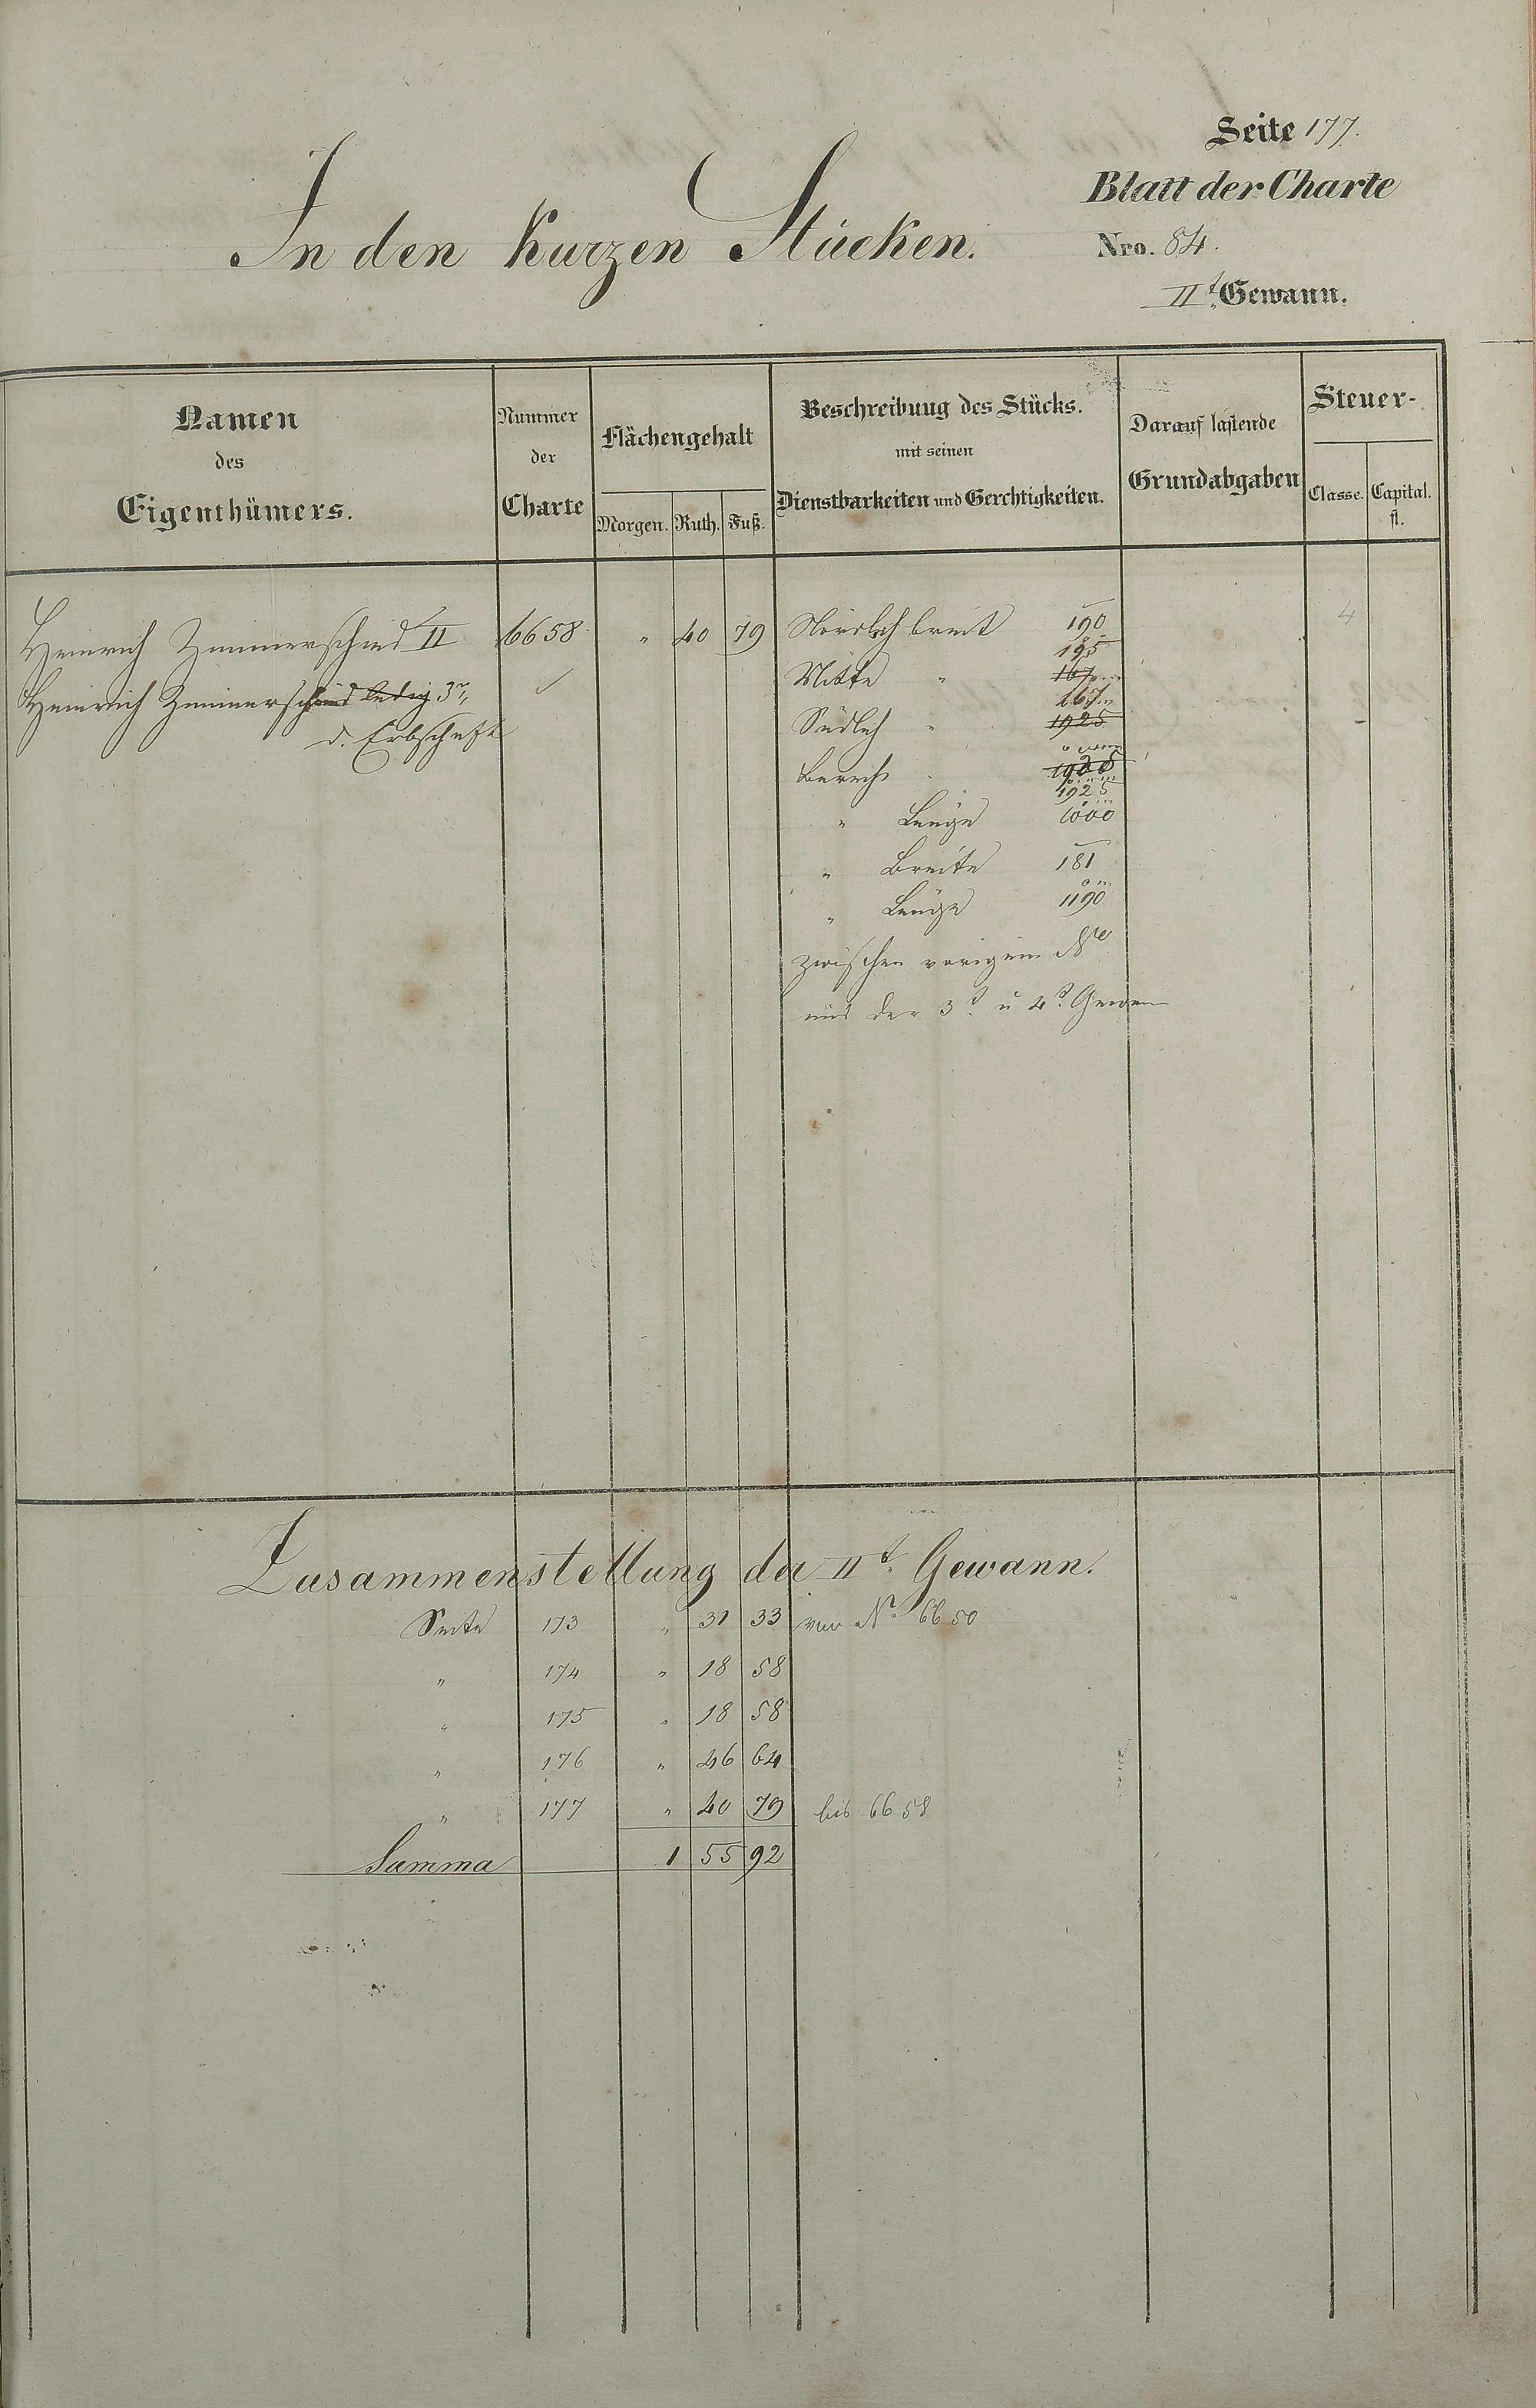 Seite 177.
Blatt der Charte
In den Kurzen Stücken.
Nro. 84.
IIt. Gewann.
Namen
des
Eigenthümers.
Nummer
der
Charte
Flächengehalt
Morgen. Ruth. Fuß.
Beschreibung des Stücks.
mit seinen
Dienstbarkeiten und Gerechtigkeiten.
Darauf lastende
Grundabgaben
Steuer-
Classe. Capital.
fl.
Heinrich Zimmerschied II 6658 " 40 79 Nördlich breit 190 4
195
Heinrich Zimmerschied ledig 3r, Mitte " 167
167
d. Erbschaft
Südlich " 1925
Bericht
1925
" Länge 1000
" Breite 181
" Länge 1190
zwischen vorigem No
und der 3t. u 4t. Gewann
Zusammenstellung der IIt. Gewann.
Seite 173 " 31 33 von No 6650
" 174 " 18 58
" 175 " 18 58
" 176 " 46 64
" 177 " 40 79 bis 6658
Summa 1 55 92